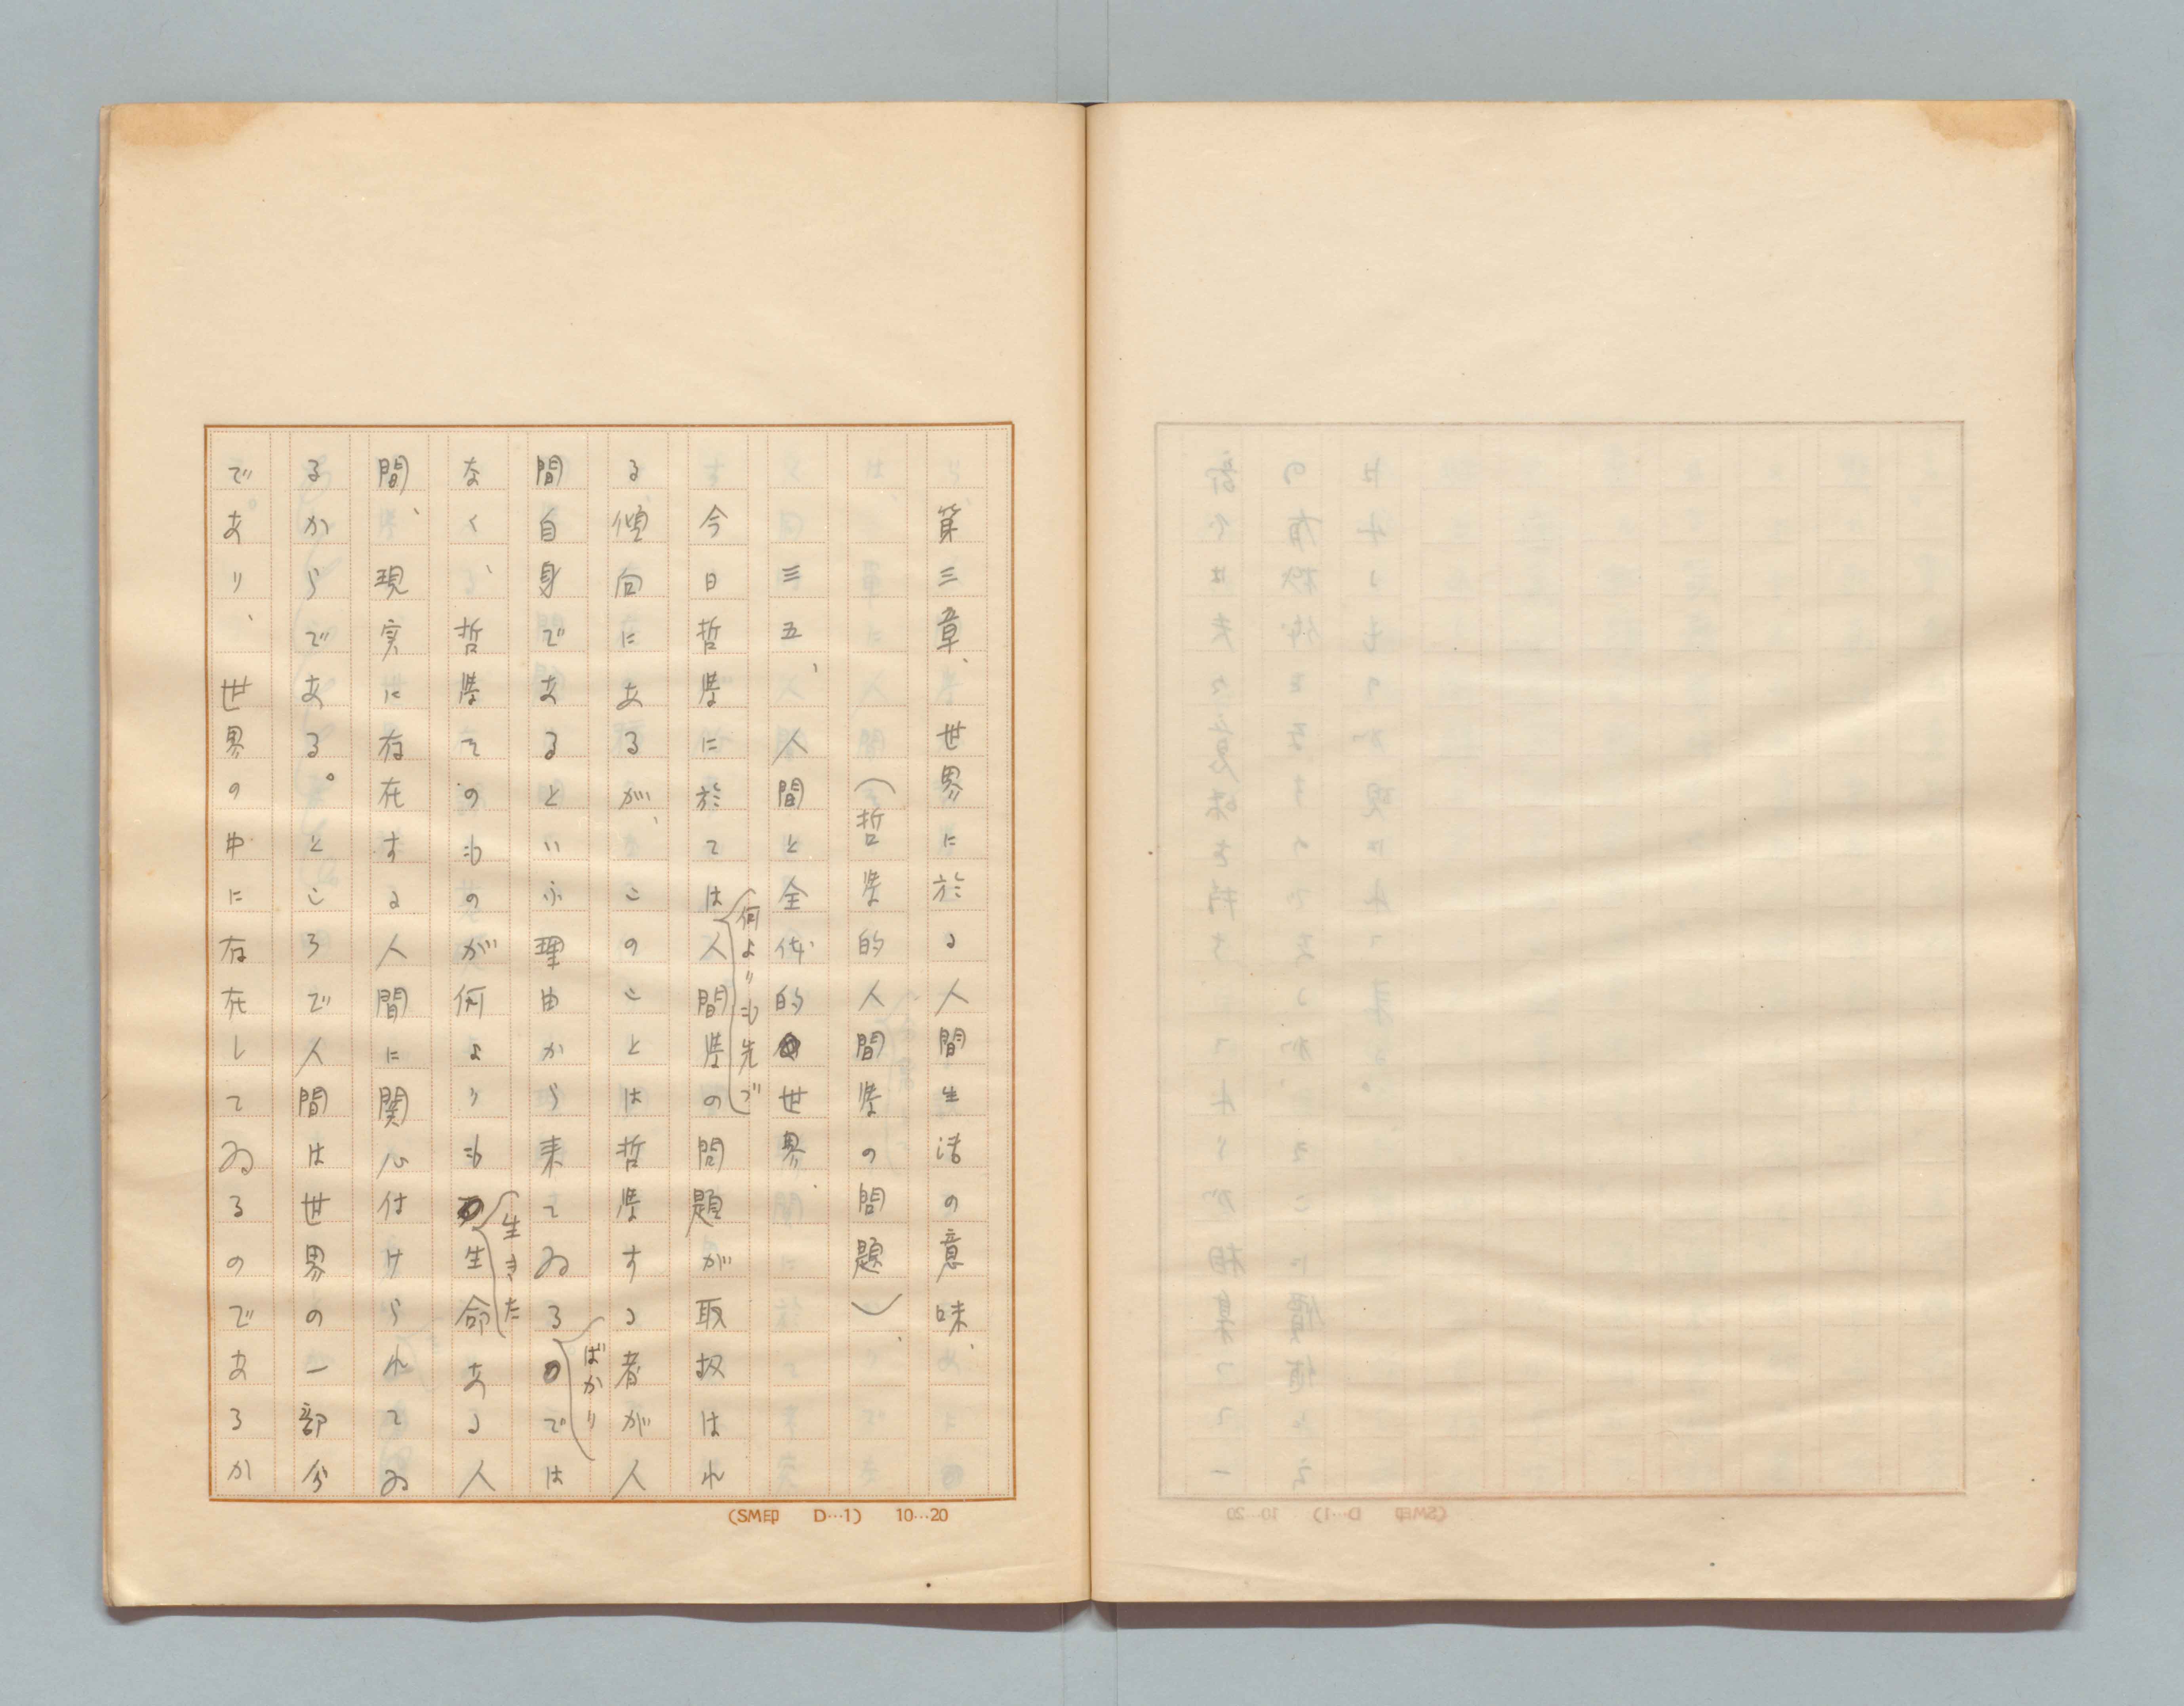 第三章、世界に於る人間生活の意味、
(哲学的人間学の問題)、
三五、人間と全体的世界.
今日哲学に於ては何よりも先で人間学の問題が取扱はれ
る傾向にあるが、このことは哲学する者が人
間自身であるといふ理由から来てゐるばかりでは
なく、哲学そのものが何よりも生きた生命ある人
間、現実に存在する人間に関心付けられてゐ
るからである。ところで人間は世界の一部分
であり、世界の中に存在してゐるのであるか
(SM印 D…1) 10…20